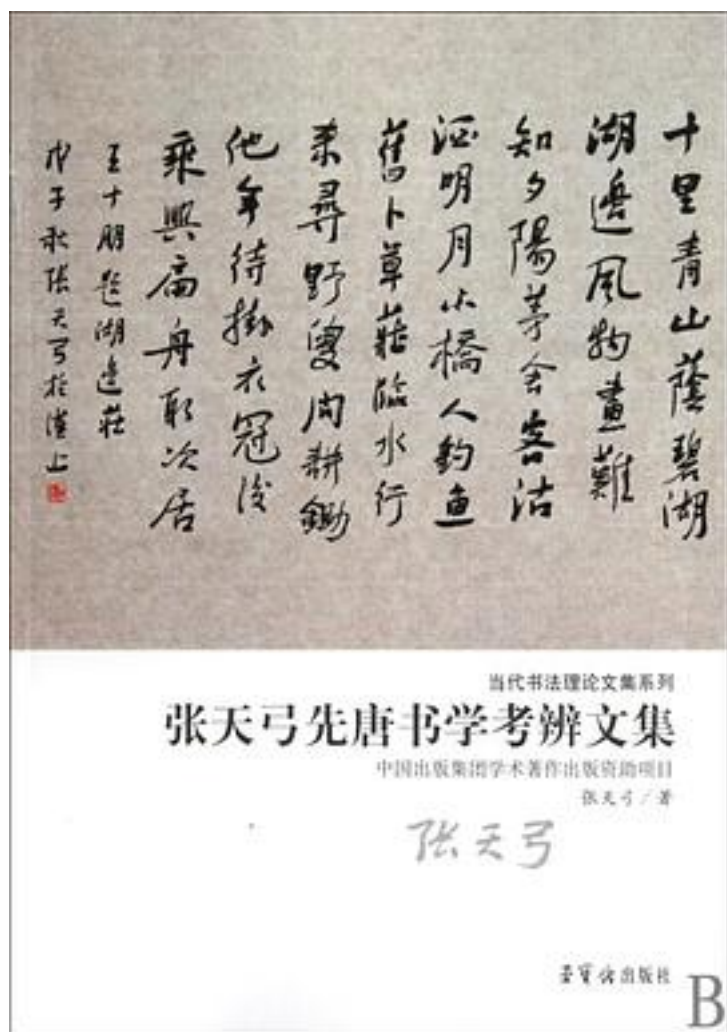 十里青山蔭碧湖
湖邊風物畫難
知夕陽茅舍客沽
酒明月小橋人釣魚
舊卜草莊臨水行
来尋野叟問耕鋤
他年待掛衣冠後
乘興扁舟取次居
王十朋題湖邊莊
戊子秋張天弓於漢上
当代书法理论文集系列
张天弓先唐书学考辨文集
中国出版集团学术著作出版资助项目
张天弓/著
张天弓
荣宝斋出版社
B